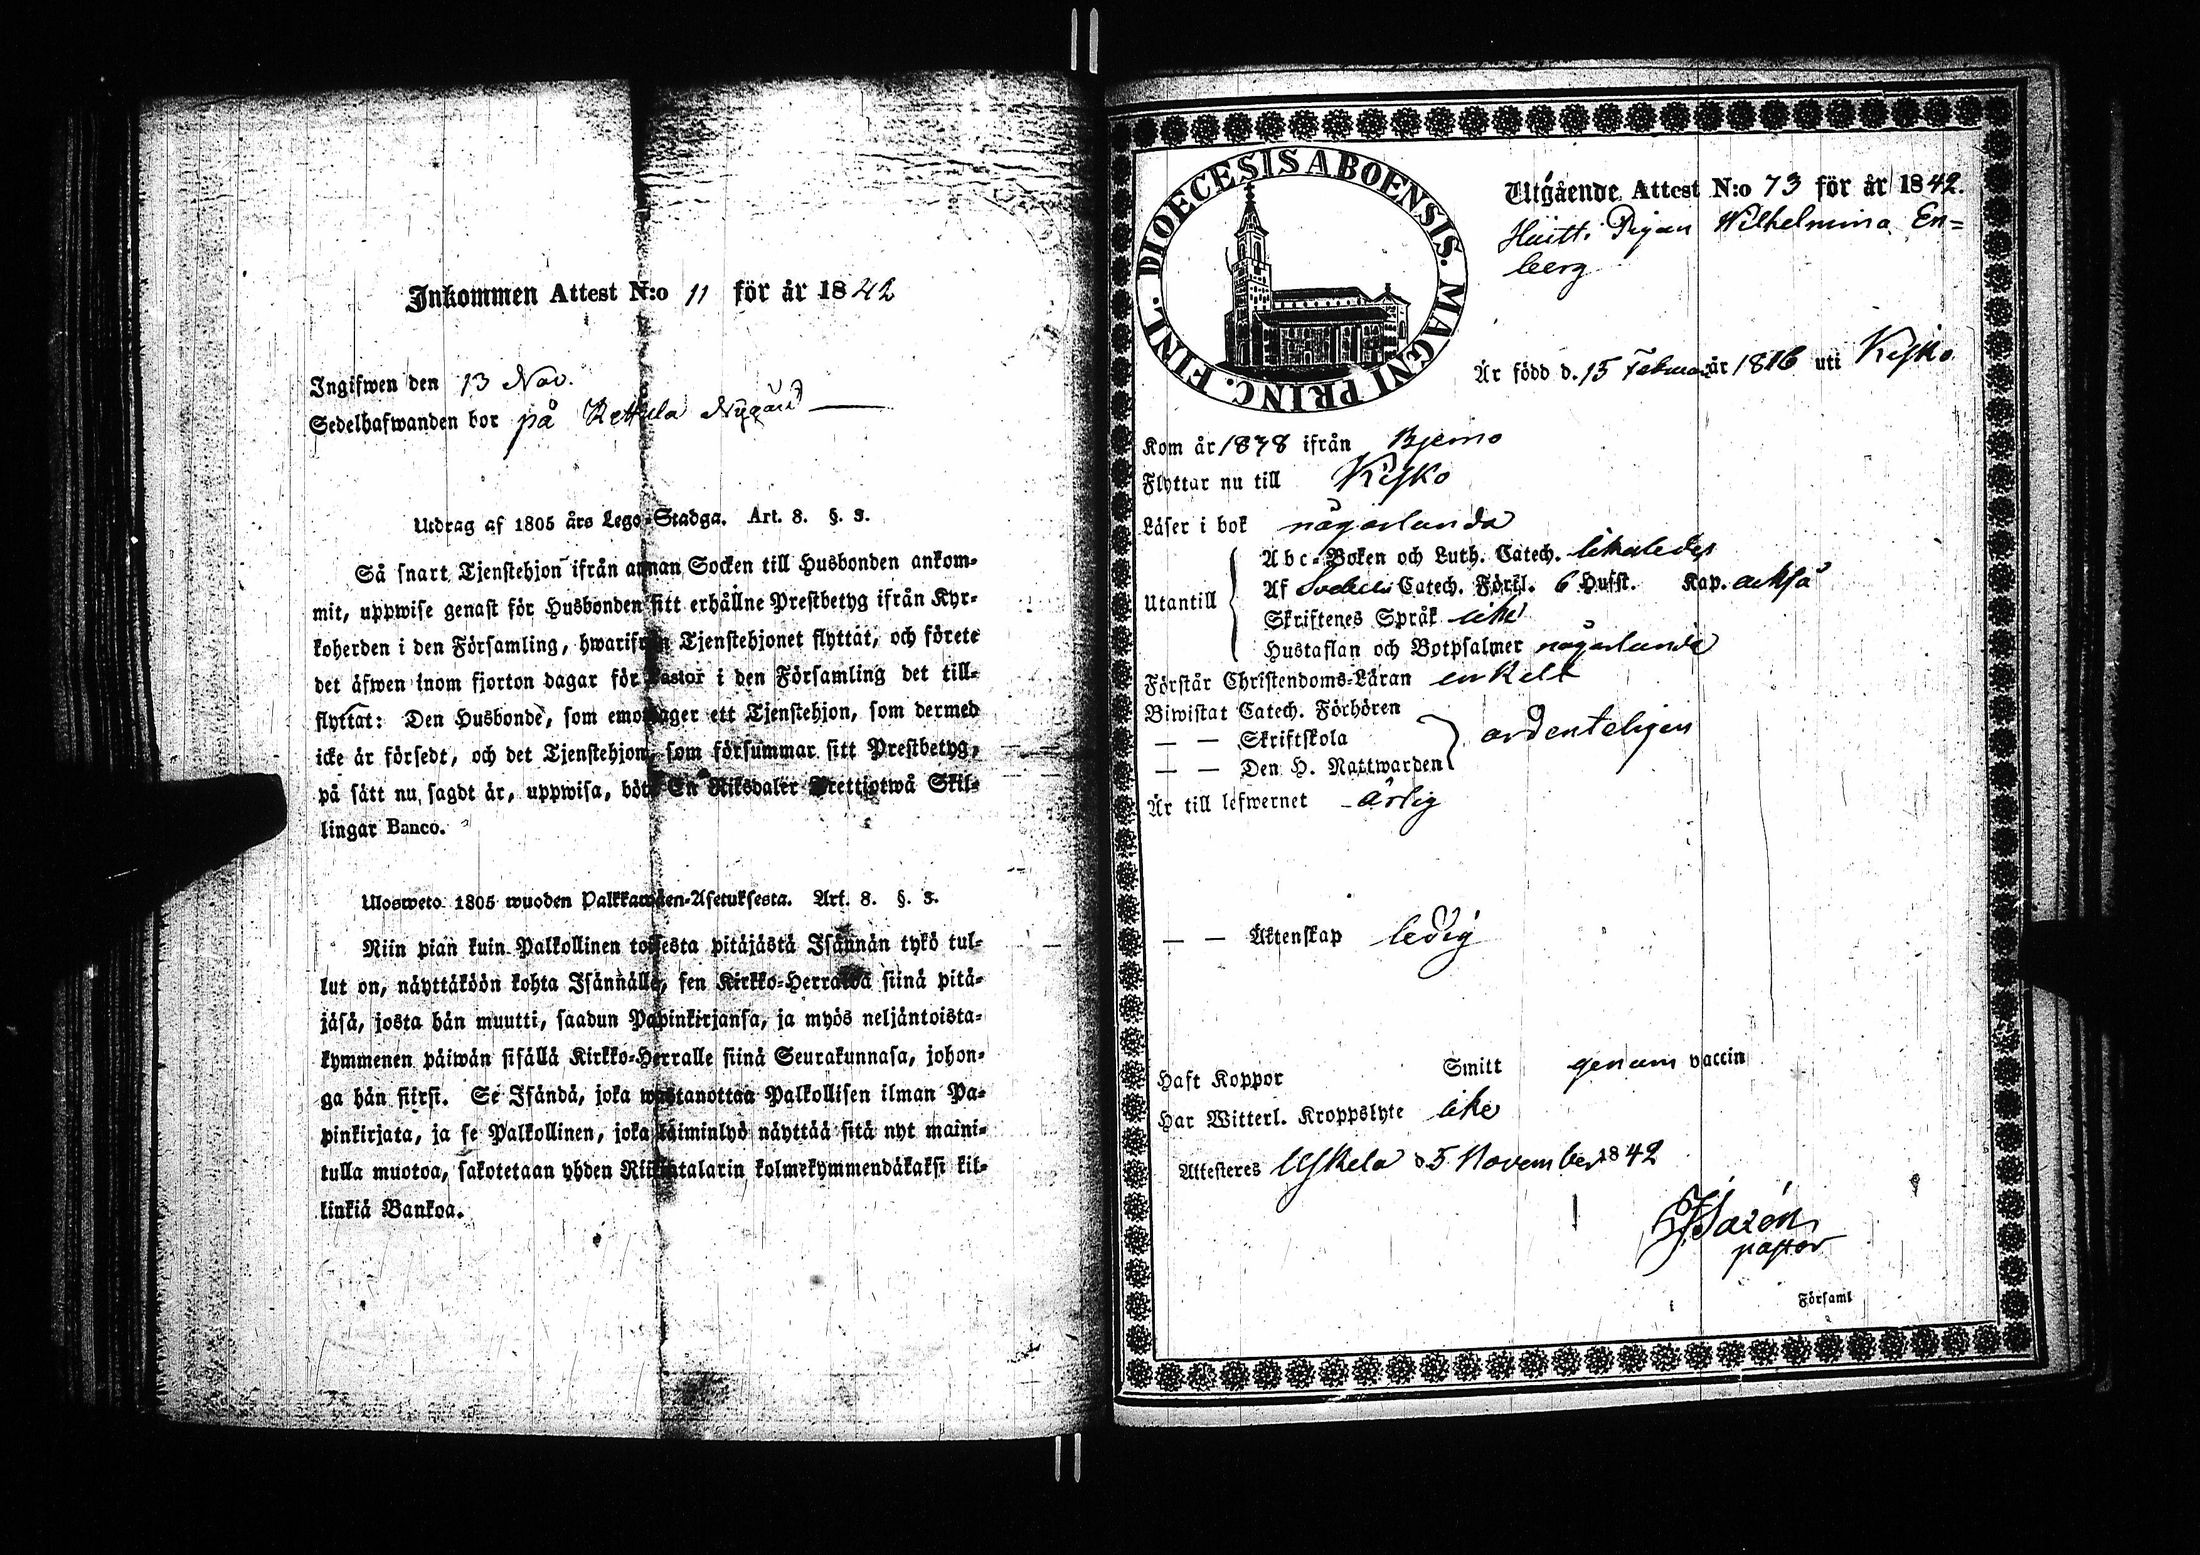 Inkommen Attest N:o 11 för år 1842
Ingifwen den 13 Nov.
Sedelhafwanden bor på Kettula Nygård
Utdrag af 1805 års Lego-Stadga. Art. 8. §. 3.
Så snart Tjenstehjon ifrån annan Socken till Husbonden ankom-
mit, uppwise genast för Husbonden sitt erhållne Prestbetyg ifrån Kyr-
koherden i den Församling, hwarifrån Tjenstehjonet flyttat, och förete
det äfwen inom fjorton dagar för Pastor i den Församling det till-
flyttat: Den Husbonde, som emottager ett Tjenstehjon, som dermed
icke är försedt, och det Tjenstehjon, som försummar sitt Prestbetyg,
på sätt nu sagdt är, uppwisa, böte En Riksdaler Trettiotwå Skil-
lingar Banco.
Ulosweto 1805 wuoden Palkkawäen-Asetuksesta. Art. 8. §. 3.
Niin pian kuin Palkollinen toisesta pitäjästä Isännän tykö tul-
lut on, näyttäköön kohta Isännälle, sen Kirkko-Herralda siinä pitä-
jäsä, josta hän muutti, saadun Papinkirjansa, ja myös neljäntoista-
kymmenen päiwän sisällä Kirkko-Herralle siinä Seurakunnasa, johon-
ga hän siirst. Se Isändä, joka wastanottaa Palkollisen ilman Pa-
pinkirjata, ja se Palkollinen, joka laiminlyö näyttää sitä nyt maini-
tulla muotoa, sakotetaan yhden Riikintalarin kolmekymmendäkaksi kil-
linkiä Bankoa.
DIOECESIS ABOENSIS. MAGNI PRINC. FINL.
Utgående Attest N:o 73 för år 1842.
Huitti Pigan Wilhelmina En=
berg
Är född d. 15 Februar år 1816 uti Kisko
Kom år 1838 ifrån Bjerno
Flyttar nu till Kisko
Läser i bok någorlunda
Utantill
Abc-Boken och Luth. Catech. likaledes
Af Svebelii Catech. Förkl. 6 Hufst. Kap. också
Skriftenes Språk icke
Hustaflan och Botpsalmer någorlunda
Förstår Christendoms-Läran enkelt
Biwistat Catech. Förhören
— — Skriftskola ordenteligen
— — Den H. Nattwarden
Är till lefwernet ärlig
— — Äktenskap ledig
Haft Koppor Smitt genom vaccin
Har Witterl. Kroppslyte icke
Attesteres Uskela d. 5 November 1842
pastor
Församl